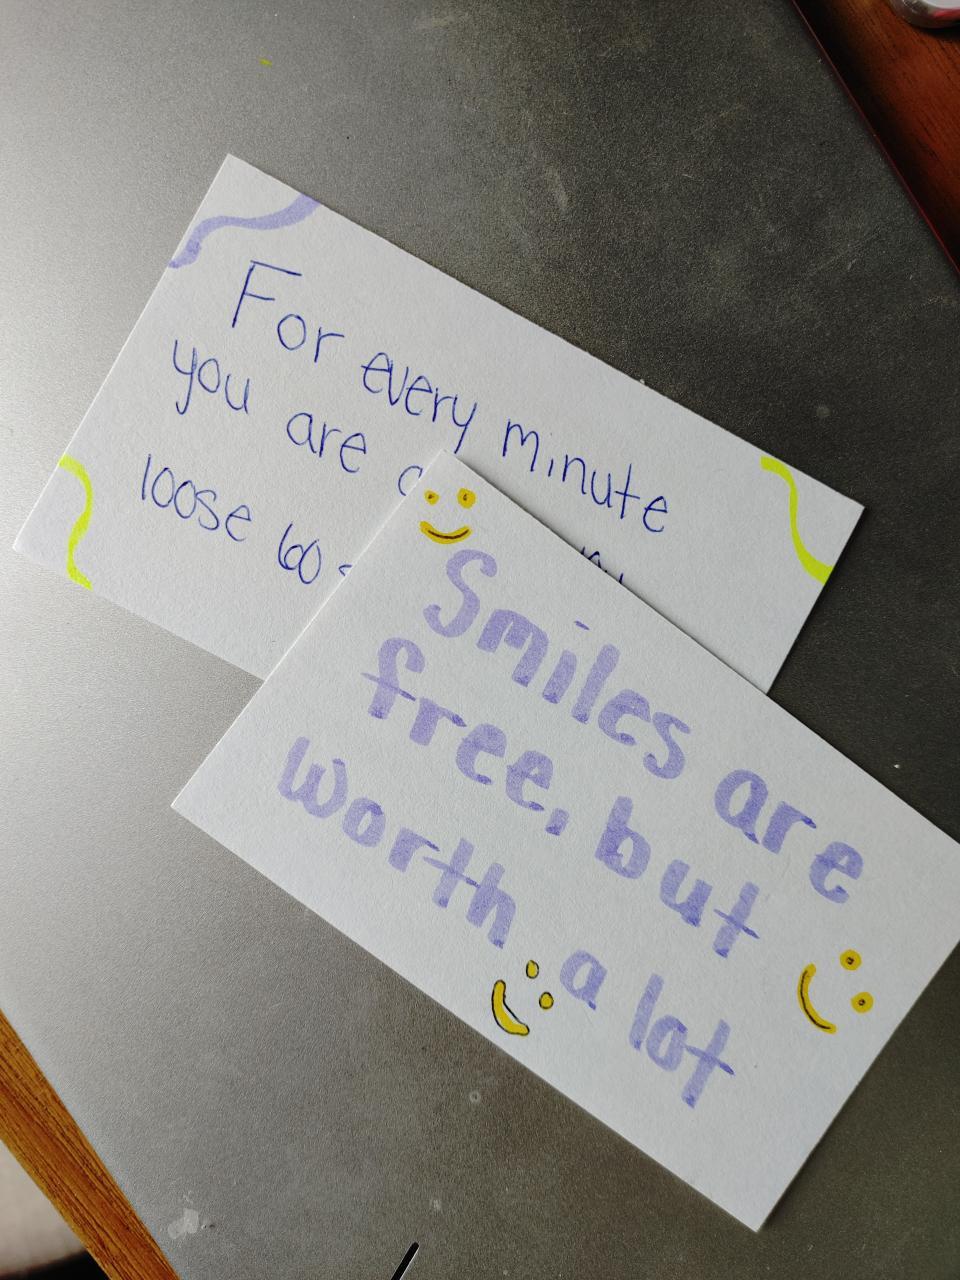 For every minute
you are
loose 60
Smiles are
free, but
worth
a lot